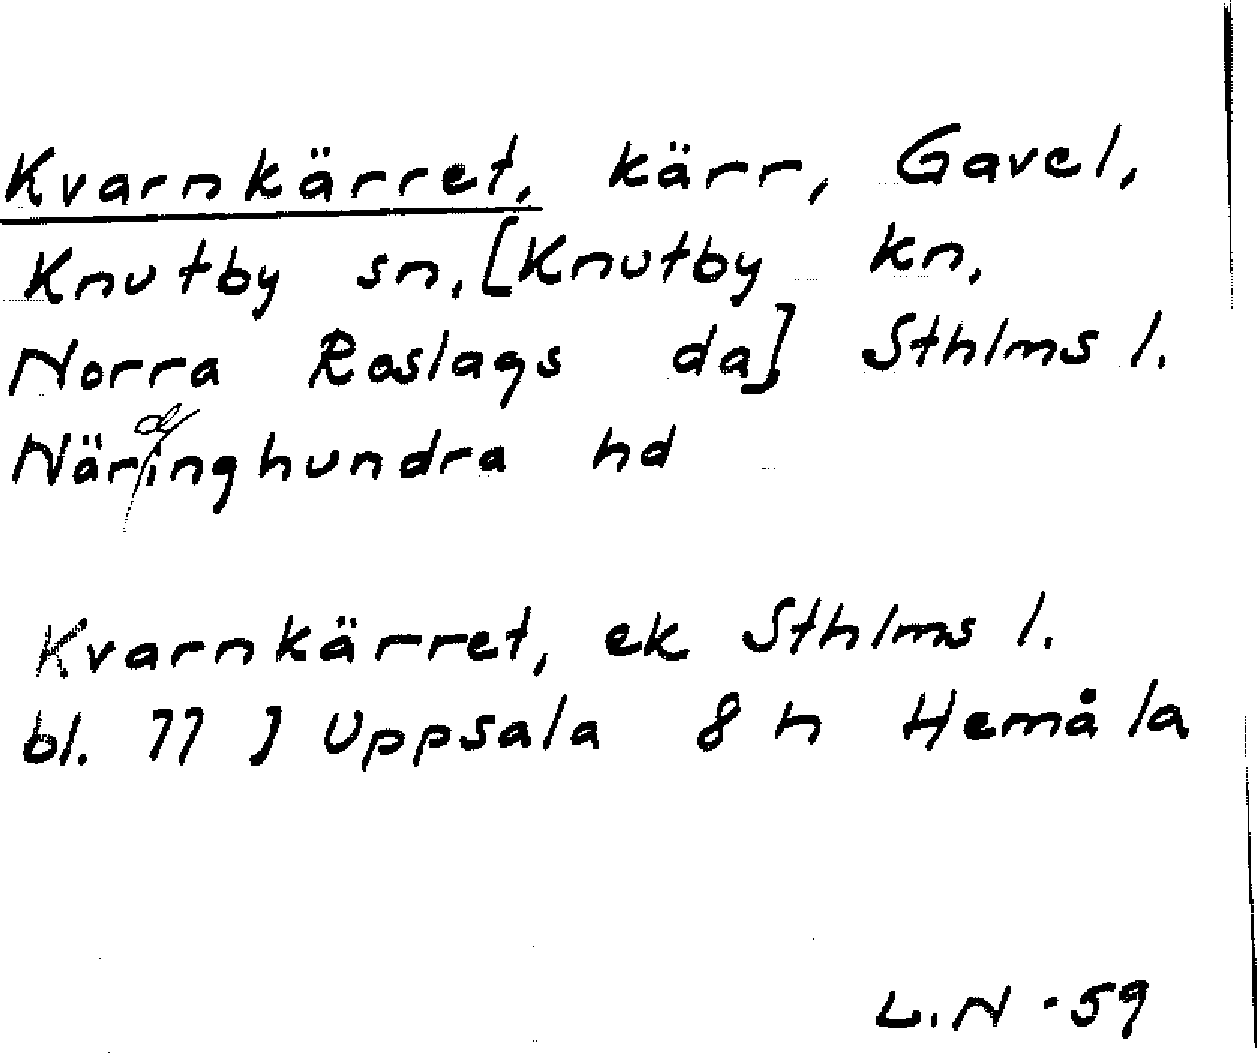 Kvarnkärret, kärr, Gavel,
Knutby sn, [Knutby kn,
Norra Roslags da] Sthlms l.
Närdinghundra hd
Kvarnkärret, ek Sthlms l.
bl. 77 J Uppsala 8 h Hemåla
L.N -59